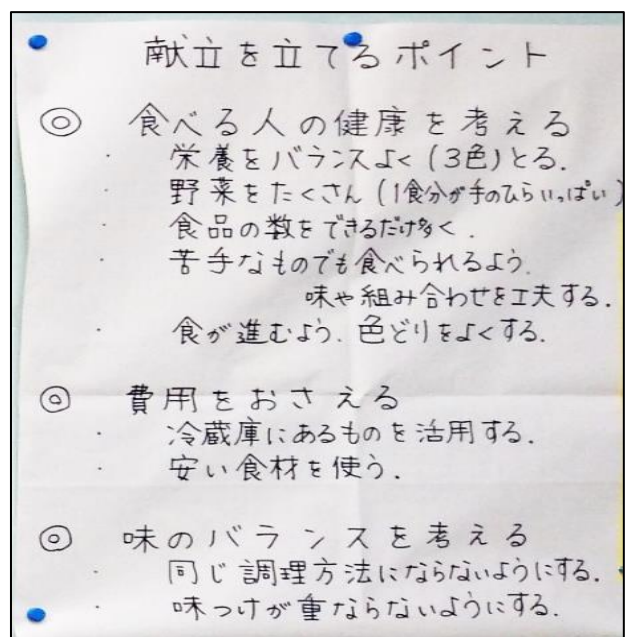 献立を立てるポイント
◎ 食べる人の健康を考える
・ 栄養をバランスよく(3色)とる.
・ 野菜をたくさん(1食分が手のひらいっぱい)
・ 食品の数をできるだけ多く.
・ 苦手なものでも食べられるよう.
味や組み合わせを工夫する.
・ 食が進むよう.色どりをよくする.
◎ 費用をおさえる
・ 冷蔵庫にあるものを活用する.
・ 安い食材を使う.
◎ 味のバランスを考える
・ 同じ調理方法にならないようにする.
・ 味つけが重ならないようにする.